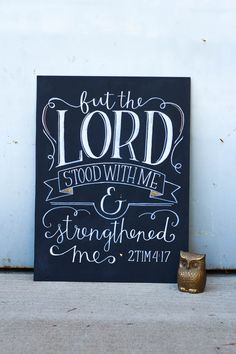 but the
LORD
STOOD WITH ME
&
strengthened
me 2TIM 4:17